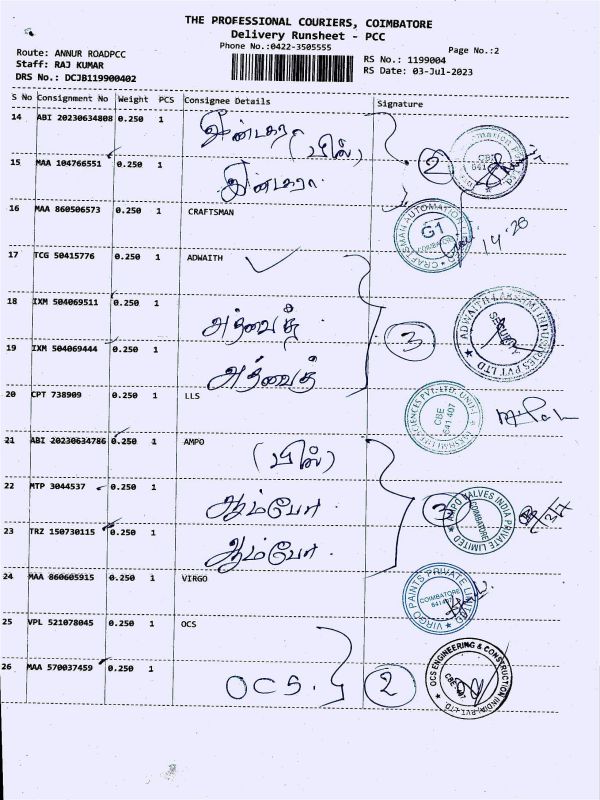 THE PROFESSIONAL COURIERS, COIMBATORE
Delivery Runsheet - PCC
Phone No.:0422-3505555
Page No.:2
Route: ANNUR ROADPCC
Staff: RAJ KUMAR
DRS No.: DCJB119900402
RS No.: 1199004
RS Date: 03-Jul-2023
S No Consignment No Weight PCS Consignee Details Signature
14 ABI 20230634808 0.250 1
(பில்)
2
15 MAA 104766551 0.250 1
16 MAA 860506573 0.250 1 CRAFTSMAN
CRAFTSMAN AUTOMATION
G1
COIMBATORE
17 TCG 50415776 0.250 1 ADWAITH
18 IXM 504069511 0.250 1 அத்வைத்
3
ADWAITH LAKSHMI INDUSTRIES PVT LTD
SECURITY
19 IXM 504069444 0.250 1 அத்வைத்
20 CPT 738909 0.250 1 LLS
CBE
641 407
21 ABI 20230634786 0.250 1 AMPO
(பில்)
22 MTP 3044537 0.250 1 ஆம்போ.
3
AMPO VALVES INDIA PRIVATE LIMITED
COIMBATORE
23 TRZ 150730115 0.250 1 ஆம்போ.
24 MAA 860605915 0.250 1 VIRGO
VIRGO PAINTS PRIVATE LIMITED
COIMBATORE
641407
25 VPL 521078045 0.250 1 OCS
26 MAA 570037459 0.250 1 OCS.
2
OCS ENGINEERING & CONSTRUCTION (INDIA) PVT. LTD.